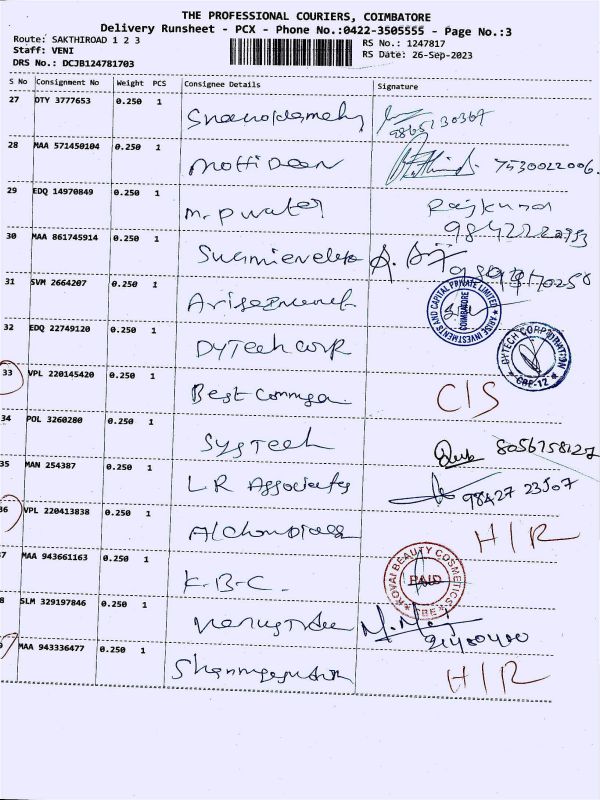 THE PROFESSIONAL COURIERS, COIMBATORE
Delivery Runsheet - PCX - Phone No.:0422-3505555 - Page No.:3
Route: SAKTHIROAD 1 2 3
RS No.: 1247817
Staff: VENI
RS Date: 26-Sep-2023
DRS No.: DCJB124781703
S No Consignment No Weight PCS Consignee Details Signature
27 DTY 3777653 0.250 1
9865130367
28 MAA 571450104 0.250 1 7530022006.
29 EDQ 14970849 0.250 1 M.P water Rajkumar
30 MAA 861745914 0.250 1
31 SVM 2664207 0.250 1
ARISE INVESTMENTS AND CAPITAL PRIVATE LIMITED
COIMBATORE
32 EDQ 22749120 0.250 1 DyTech corp
DYTECH CORPORATION
CBE-12
33 VPL 220145420 0.250 1 Best C/S
34 POL 3260280 0.250 1 SysTech 8056758127
35 MAN 254387 0.250 1 LR Associates 98427 23507
36 VPL 220413838 0.250 1 H/R
37 MAA 943661163 0.250 1 K.B.C.
KOVAI BEAUTY COSMETICS
PAID
CBE
8 SLM 329197846 0.250 1
9 MAA 943336477 0.250 1 H/R